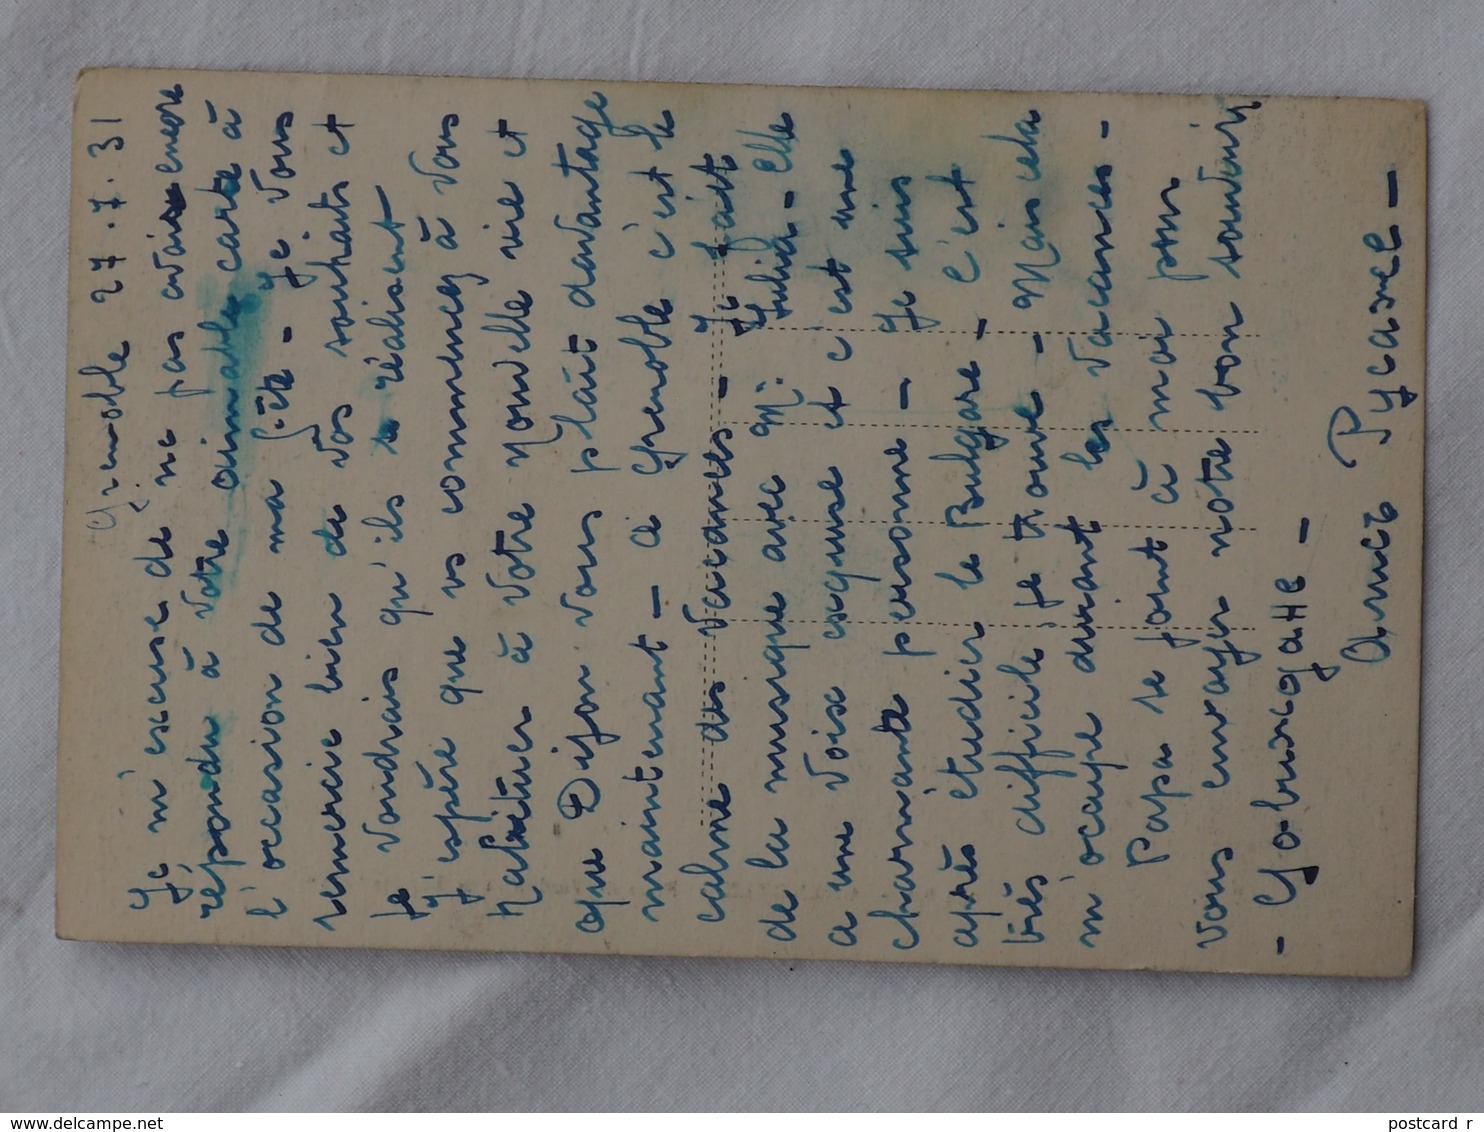 Grenoble 27.7.31
Je m'excuse de ne pas avoir encore
répondu à votre aimable carte à
l'occasion de ma fête - Je vous
remercie bien de vos souhaits et
je voudrais qu'ils se réalisent
J'espère que vs commencez à vous
habituer à votre nouvelle vie et
que Dijon vous plaît davantage
maintenant - à Grenoble c'est le
calme des vacances - Je fais
de la musique avec M. Julia - elle
a une voix exquise et c'est une
charmante personne - Je suis
après étudier le Bulgare - c'est
très difficile je trouve - Mais cela
m'occupe durant les vacances -
Papa se joint à moi pour
vous envoyer notre bon souvenir
- Довиждане -
postcard r